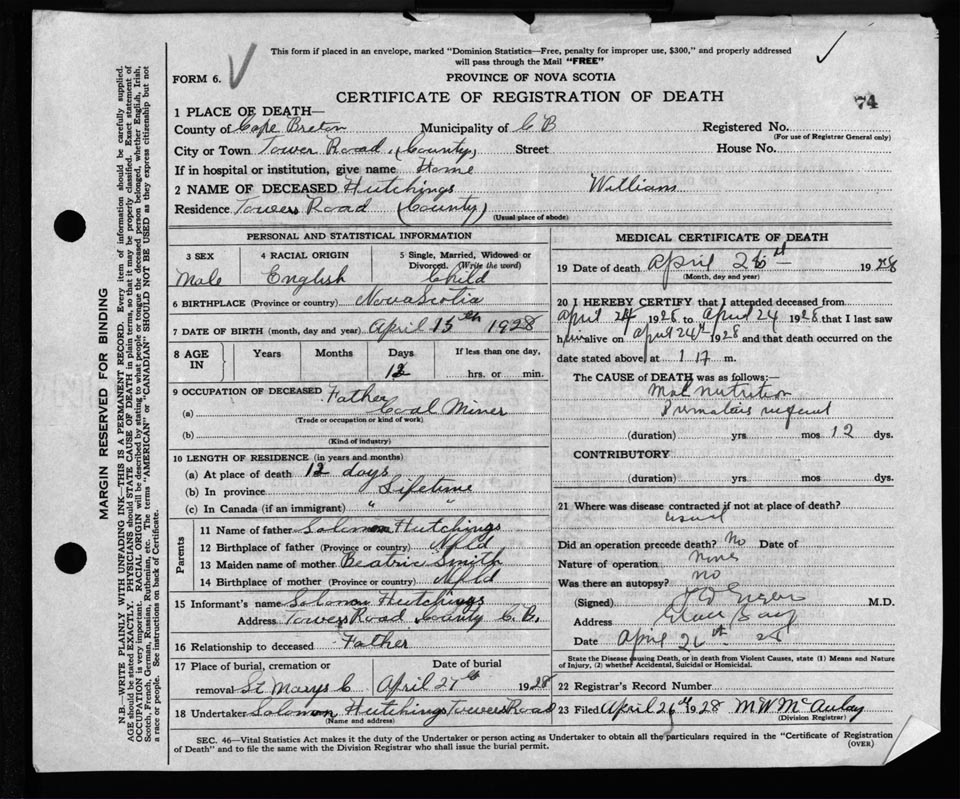 This form if placed in an envelope, marked "Dominion Statistics—Free, penalty for improper use, $300," and properly addressed
will pass through the Mail "FREE"
FORM 6.
PROVINCE OF NOVA SCOTIA
CERTIFICATE OF REGISTRATION OF DEATH
74
1 PLACE OF DEATH—
County of Cape Breton Municipality of C B Registered No.
(For use of Registrar General only)
City or Town Tower Road (County) Street House No.
If in hospital or institution, give name Home
2 NAME OF DECEASED Hutchings William
Residence Tower Road (County)
(Usual place of abode)
PERSONAL AND STATISTICAL INFORMATION
3 SEX 4 RACIAL ORIGIN 5 Single, Married, Widowed or
Divorced. (Write the word)
Male English Child
6 BIRTHPLACE (Province or country) Nova Scotia
7 DATE OF BIRTH (month, day and year) April 15th 1928
8 AGE IN Years Months Days If less than one day,
12 hrs. or min.
9 OCCUPATION OF DECEASED Father
(a) Coal Miner
(Trade or occupation or kind of work)
(b)
(Kind of industry)
10 LENGTH OF RESIDENCE (in years and months)
(a) At place of death 12 days
(b) In province Lifetime
(c) In Canada (if an immigrant) " "
Parents
11 Name of father Solomon Hutchings
12 Birthplace of father (Province or country) Nfld
13 Maiden name of mother Beatrice Smith
14 Birthplace of mother (Province or country) Nfld
15 Informant's name Solomon Hutchings
Address Tower Road County C.B.
16 Relationship to deceased Father
17 Place of burial, cremation or Date of burial
removal St Marys C April 27th 1928
18 Undertaker Solomon Hutchings Tower Road
(Name and address)
MEDICAL CERTIFICATE OF DEATH
19 Date of death April 26 1928
(Month, day and year)
20 I HEREBY CERTIFY that I attended deceased from
April 24 1928 to April 24 1928 that I last saw
him alive on April 24th 1928 and that death occurred on the
date stated above, at 1 17 m.
The CAUSE OF DEATH was as follows:—
Mal nutrition
(duration) yrs. mos 12 dys.
CONTRIBUTORY
(duration) yrs. mos. dys.
21 Where was disease contracted if not at place of death?
Did an operation precede death? No Date of
Nature of operation None
Was there an autopsy? no
(Signed) M.D.
Address Glace Bay
Date April 26th 28
State the Disease causing Death, or in death from Violent Causes, state (1) Means and Nature
of Injury, (2) whether Accidental, Suicidal or Homicidal.
22 Registrar's Record Number
23 Filed April 26 1928 M W McAulay
(Division Registrar)
SEC. 46—Vital Statistics Act makes it the duty of the Undertaker or person acting as Undertaker to obtain all the particulars required in the "Certificate of Registration
of Death" and to file the same with the Division Registrar who shall issue the burial permit.
(OVER)
MARGIN RESERVED FOR BINDING
N.B.—WRITE PLAINLY WITH UNFADING INK—THIS IS A PERMANENT RECORD. Every item of information should be carefully supplied.
AGE should be stated EXACTLY. PHYSICIANS should STATE CAUSE OF DEATH in plain terms, so that it may be properly classified. Exact statement of
OCCUPATION is very important. RACIAL ORIGIN will be described by stating to what people or tongue the deceased person belonged, whether English, Irish,
Scotch, French, German, Russian, Ruthenian, etc. The terms "AMERICAN" or "CANADIAN" SHOULD NOT BE USED as they express citizenship but not
a race or people. See instructions on back of Certificate.